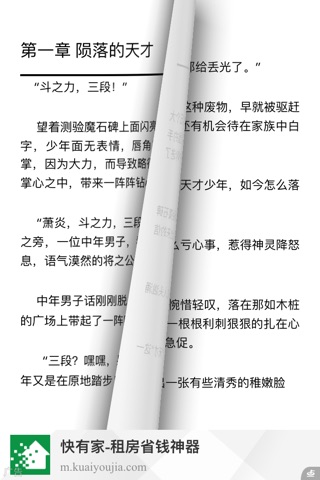 第一章 陨落的天才
给丢光了。”
“斗之力，三段！”
这种废物，早就被驱赶
望着测验魔石碑上面闪 还有机会待在家族中白
字，少年面无表情，唇角
掌，因为大力，而导致略
掌心之中，带来一阵阵钻 天才少年，如今怎么落
“萧炎，斗之力，三段
之旁，一位中年男子， 么亏心事，惹得神灵降怒
息，语气漠然的将之公
中年男子话刚刚脱 惋惜轻叹，落在那如木桩
的广场上带起了一阵 一根根利刺狠狠的扎在心
急促。
“三段？嘿嘿，
年又是在原地踏步 出一张有些清秀的稚嫩脸
快有家-租房省钱神器
m.kuaiyoujia.com
广告